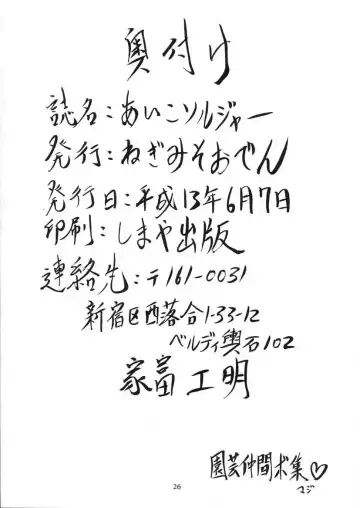 奥付け
誌名:あいこソルジャー
発行:ねぎみそおでん
発行日:平成13年6月7日
印刷:しまや出版
連絡先:〒161-0031
新宿区西落合1-33-12
ベルディ輿石102
家富工明
園芸仲間求集♡
マジ
26